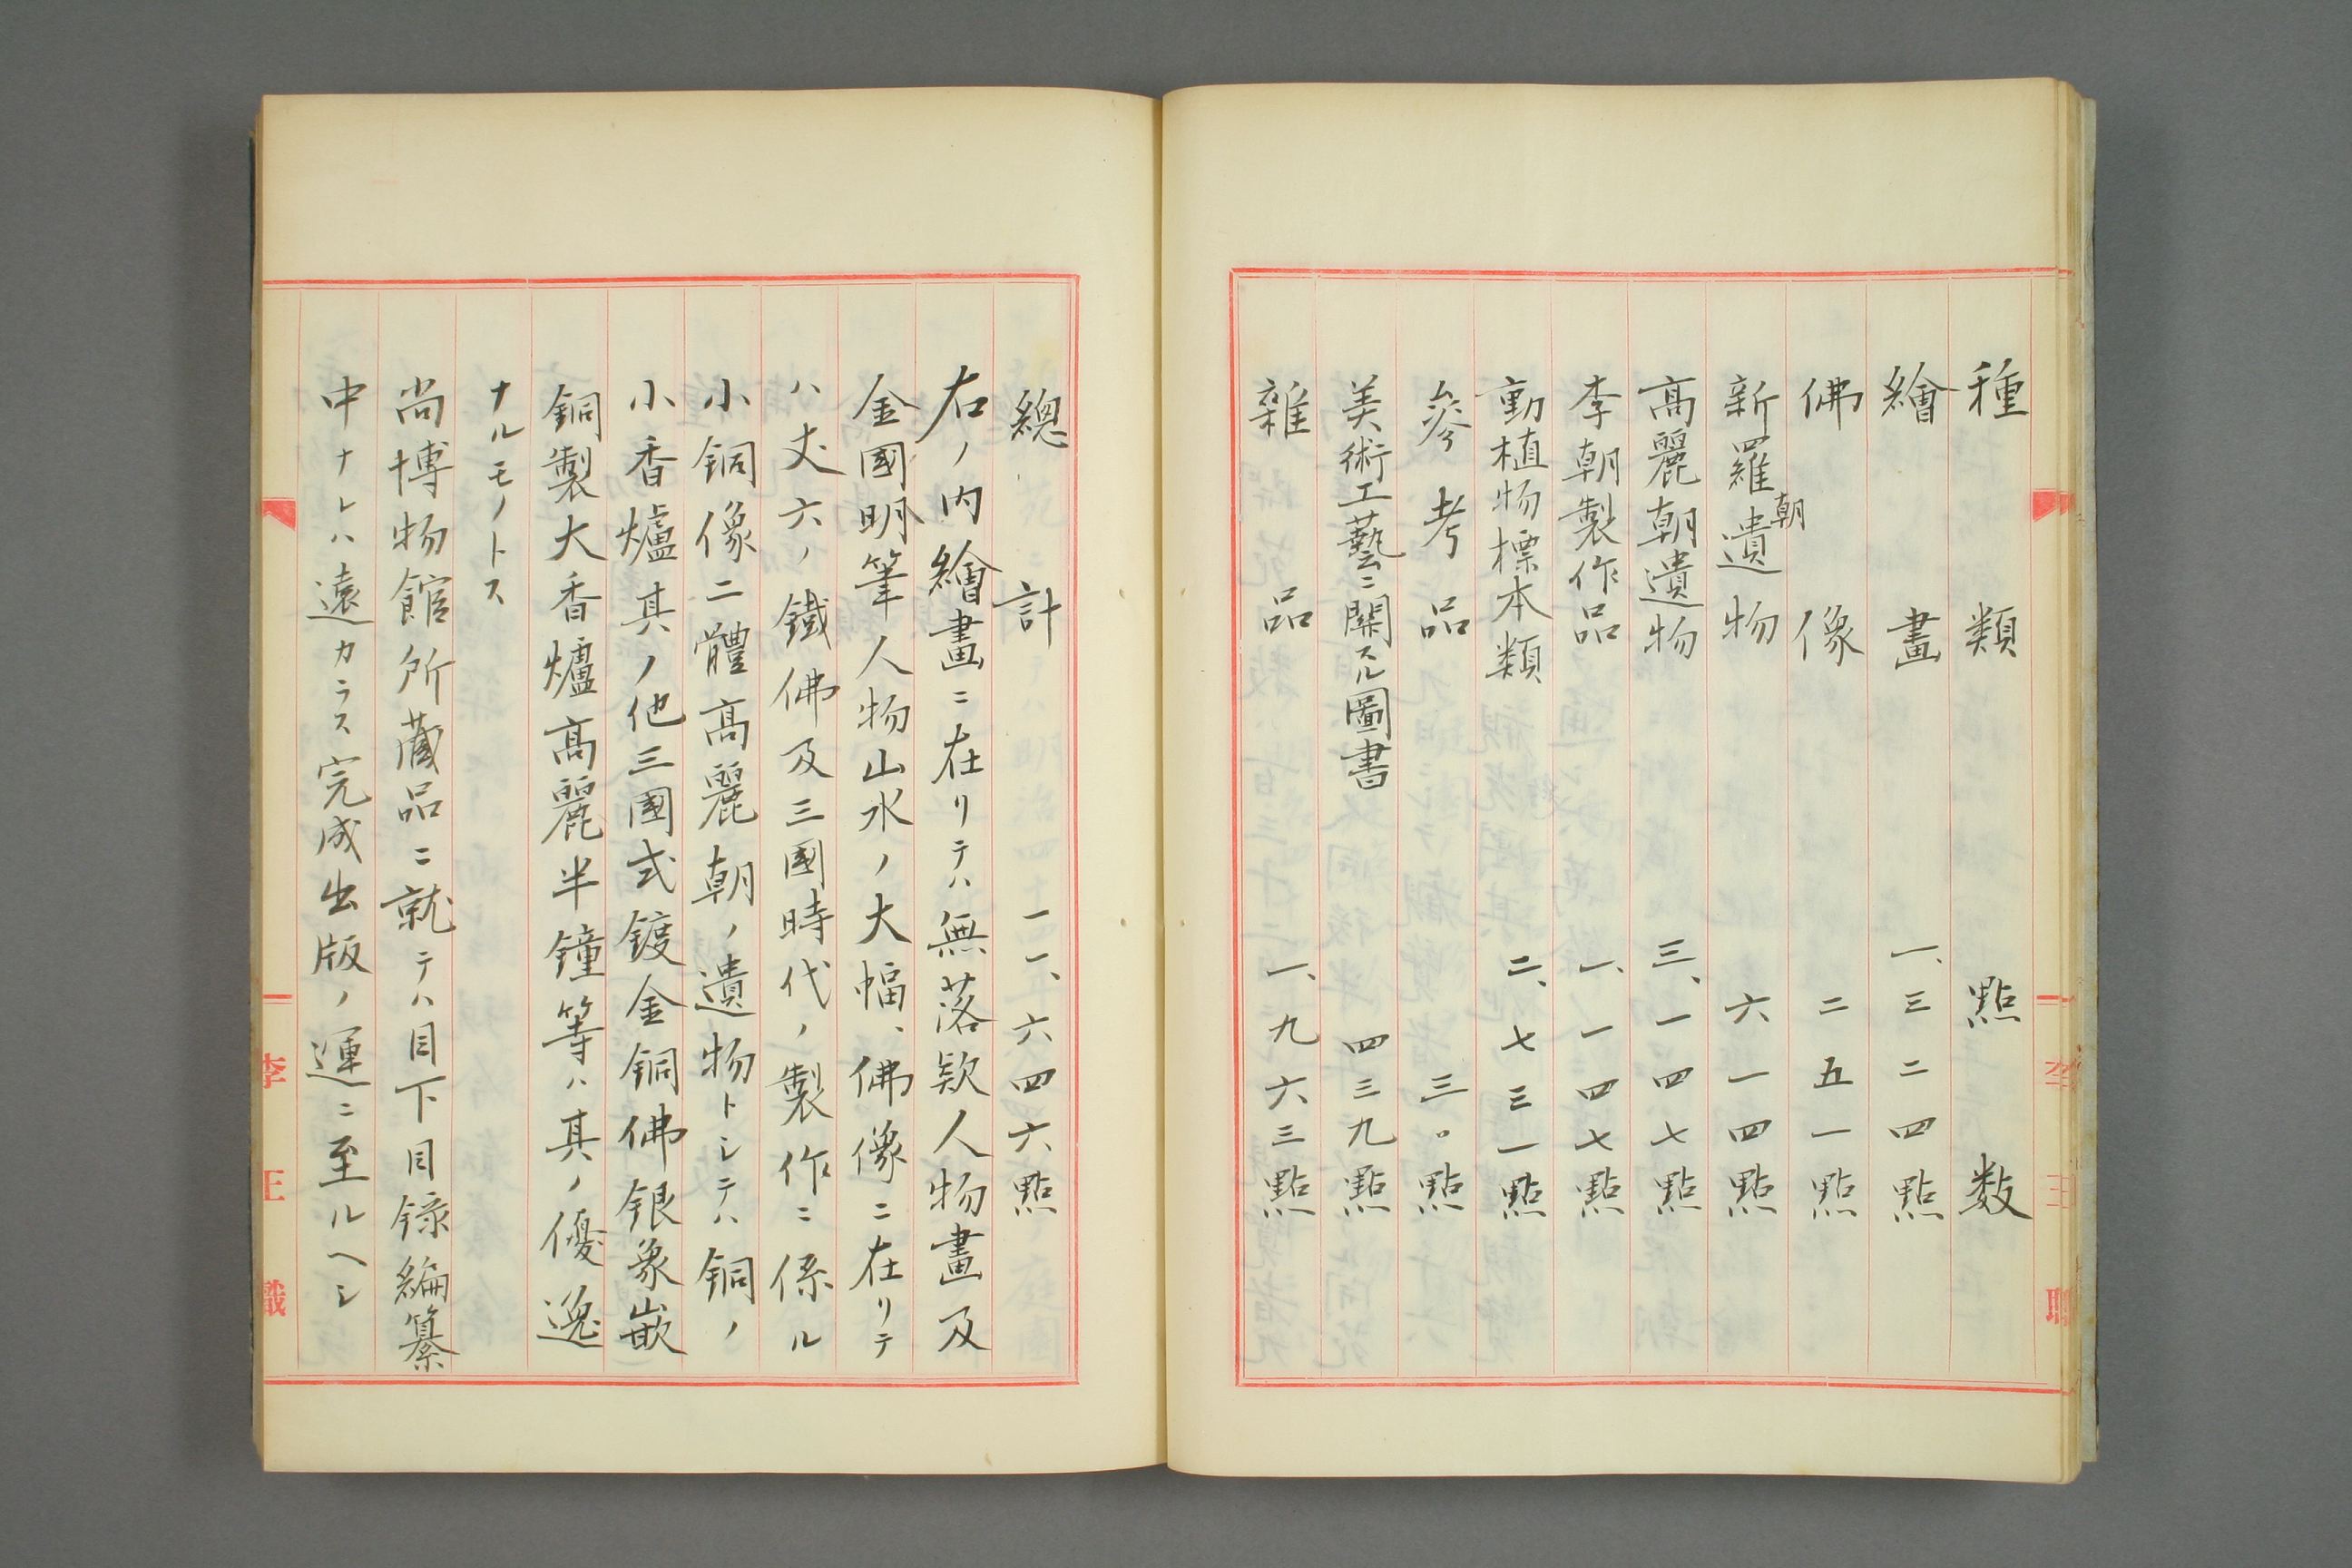 種類　點数
繪畫　一、三二四點
佛像　二五一點
新羅朝遺物　六一四點
高麗朝遺物　三、一四七點
李朝製作品　一、一四七點
動植物標本類　二、七三一點
參考品　三〇點
美術工藝ニ關スル圖書　四三九點
雜品　一、九六三點
總計　一一、六四六點
右ノ内繪畫ニ在リテハ無落欵人物畫及
金國明筆人物山水ノ大幅、佛像ニ在リテ
ハ丈六ノ鐵佛及三國時代ノ製作ニ係ル
小銅像二體高麗朝ノ遺物トシテハ銅ノ
小香爐其ノ他三國式鍍金銅佛銀象嵌
銅製大香爐高麗半鐘等ハ其ノ優逸
ナルモノトス
尚博物館所蔵品ニ就テハ目下目錄編纂
中ナレハ遠カラス完成出版ノ運ニ至ルヘシ
李王職
李王職